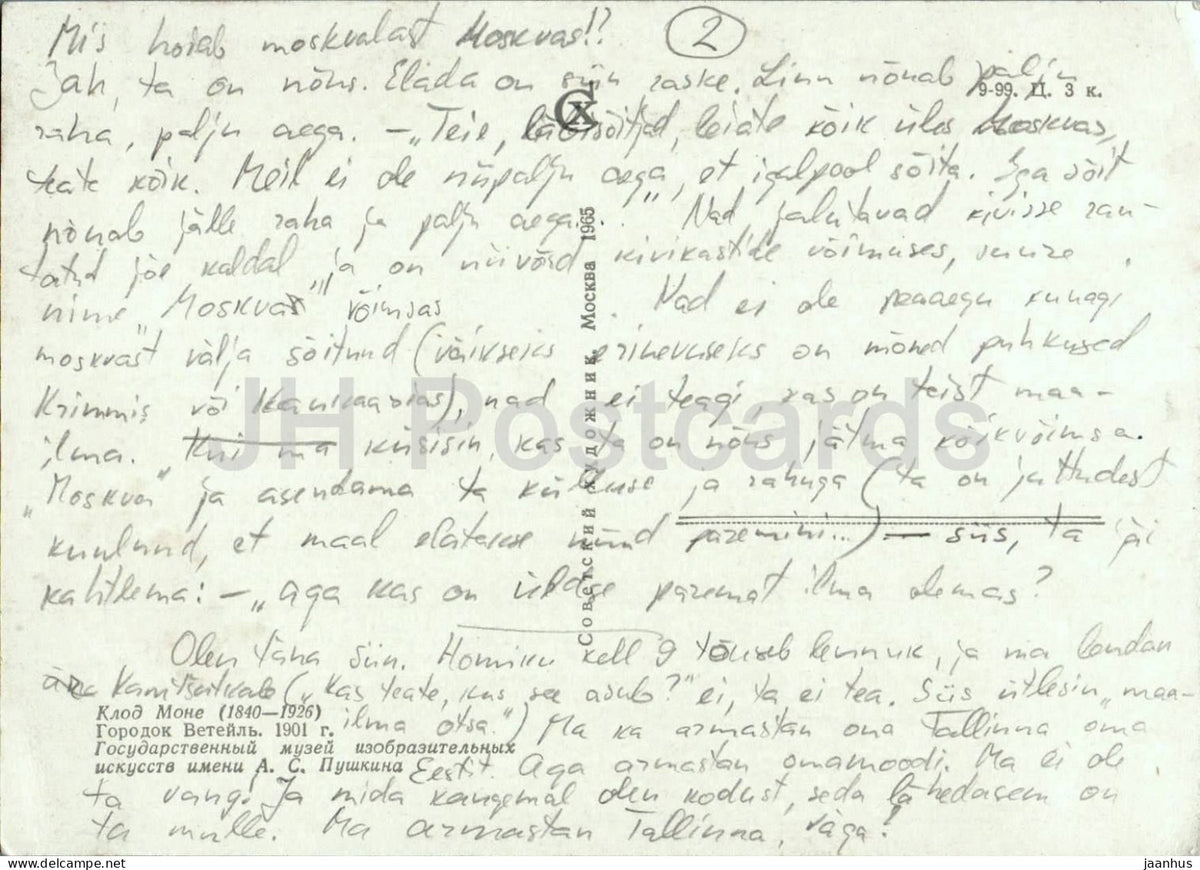 Mis hoiab moskvalast Moskvas!?
2
Jah, ta on nõus. Elada on siin raske. Linn nõuab palju
9-99. Ц. 3 к.
raha, palju aega. – „Teie, sõitjad, leiate kõik üles Moskvas,
teate kõik. Meil ei ole niipalju aega, et igalpool sõita. Iga sõit
nõuab jälle raha ja palju aega..." Nad jalutavad kivisse ran-
tatud jõe kaldal ja on niivõrd kivikastide võimuses, suure
nime „Moskva" võimsas Nad ei ole peaaegu kunagi
moskvast välja sõitnud (väikseks erinevuseks on mõned puhkused
Krimmis või Kaukaasias), nad ei teagi, kas on teist maa-
ilma. Kui ma küsisin, kas ta on nõus jätma kõikvõimsa
„Moskva" ja asendama ta külluse ja rahuga (ta on juttudest
kuulnud, et maal elatakse nüüd paremini...) – siis, ta jäi
kahtlema: – „Aga kas on üldse paremat ilma olemas?
Olen täna siin. Homiku kell 9 tõuseb lennuk, ja ma lendan
ära Kamtšatkale („Kas teate, kus see asub?" ei, ta ei tea. Siis ütlesin „maa-
ilma otsa.") Ma ka armastan oma Tallinna oma
Eestit. Aga armastan omamoodi. Ma ei ole
ta vang! Ja mida kaugemal olen kodust, seda lähedasem on
ta mulle. Ma armastan Tallinna, väga!
Клод Моне (1840—1926)
Городок Ветейль. 1901 г.
Государственный музей изобразительных
искусств имени А. С. Пушкина
Советский художник. Москва 1965
СХ
JH Postcards
www.delcampe.net
jaanhus